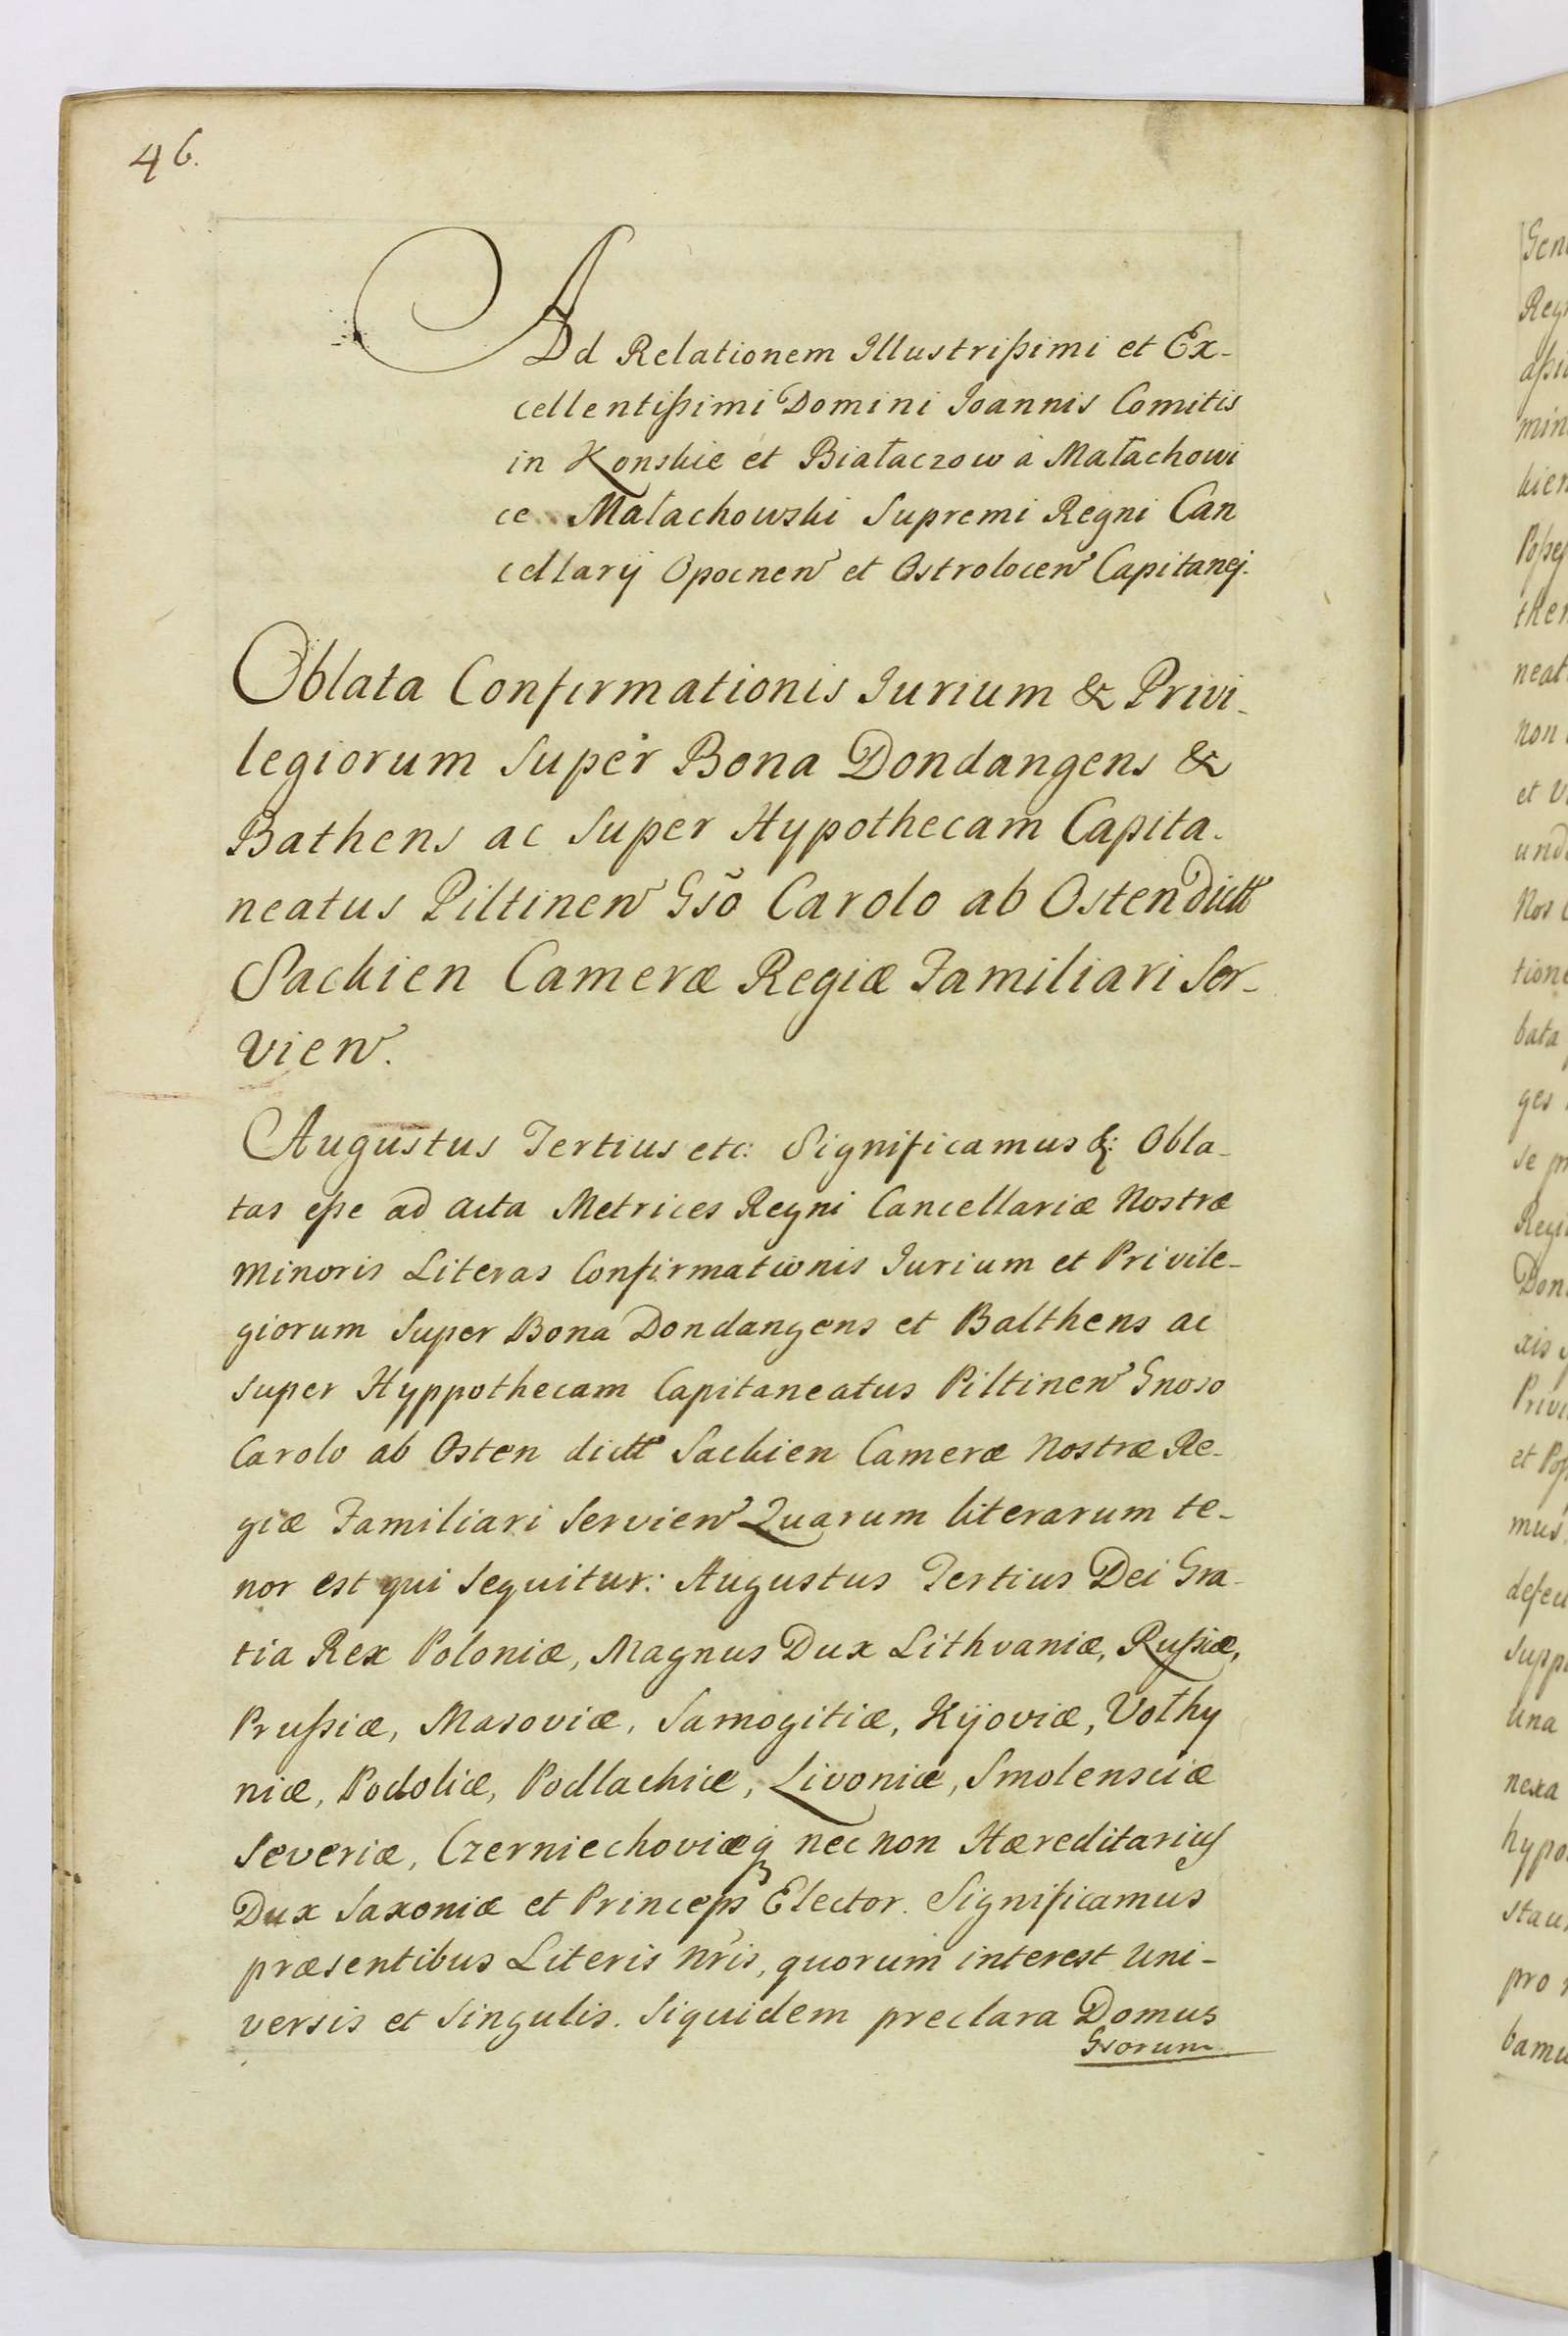 46.
Ad Relationem Illustrißimi et Ex-
cellentißimi Domini Joannis Comitis
in Konskie et Białaczow à Małachowi
ce Małachowski Supremi Regni Can
cellarij Opocnen et Ostrolocen Capitanej.
Oblata Confirmationis Jurium & Privi-
legiorum Super Bona Dondangens &
Bathens ac Super Hypothecam Capita-
neatus Piltinen Gsõ Carolo ab Osten dictt
Sackien Cameræ Regiæ Familiari Ser-
vien.
Augustus Tertius etc: Significamus &: Obla-
tas eße ad acta Metrices Regni Cancellariæ Nostræ
Minoris Literas Confirmationis Jurium et Privile-
giorum Super Bona Dondangens et Balthens ac
super Hyppothecam Capitaneatus Piltinen Gnoso
Carolo ab Osten dictt Sackien Cameræ Nostræ Re-
giæ Familiari Servien Quarum literarum te-
nor est qui sequitur: Augustus Tertius Dei Gra-
tia Rex Poloniæ, Magnus Dux Lithvaniæ, Rußiæ,
Prußiæ, Masoviæ, Samogitiæ, Kijoviæ, Vołhy
niæ, Podoliæ, Podlachiæ, Livoniæ, Smolensciæ
Severiæ, Czerniechoviæq nec non Hæreditarius
Dux Saxoniæ et Princeps Elector. Significamus
præsentibus Literis nr̃is, quorum interest Uni-
versis et Singulis. Siquidem preclara Domus
Gsorum